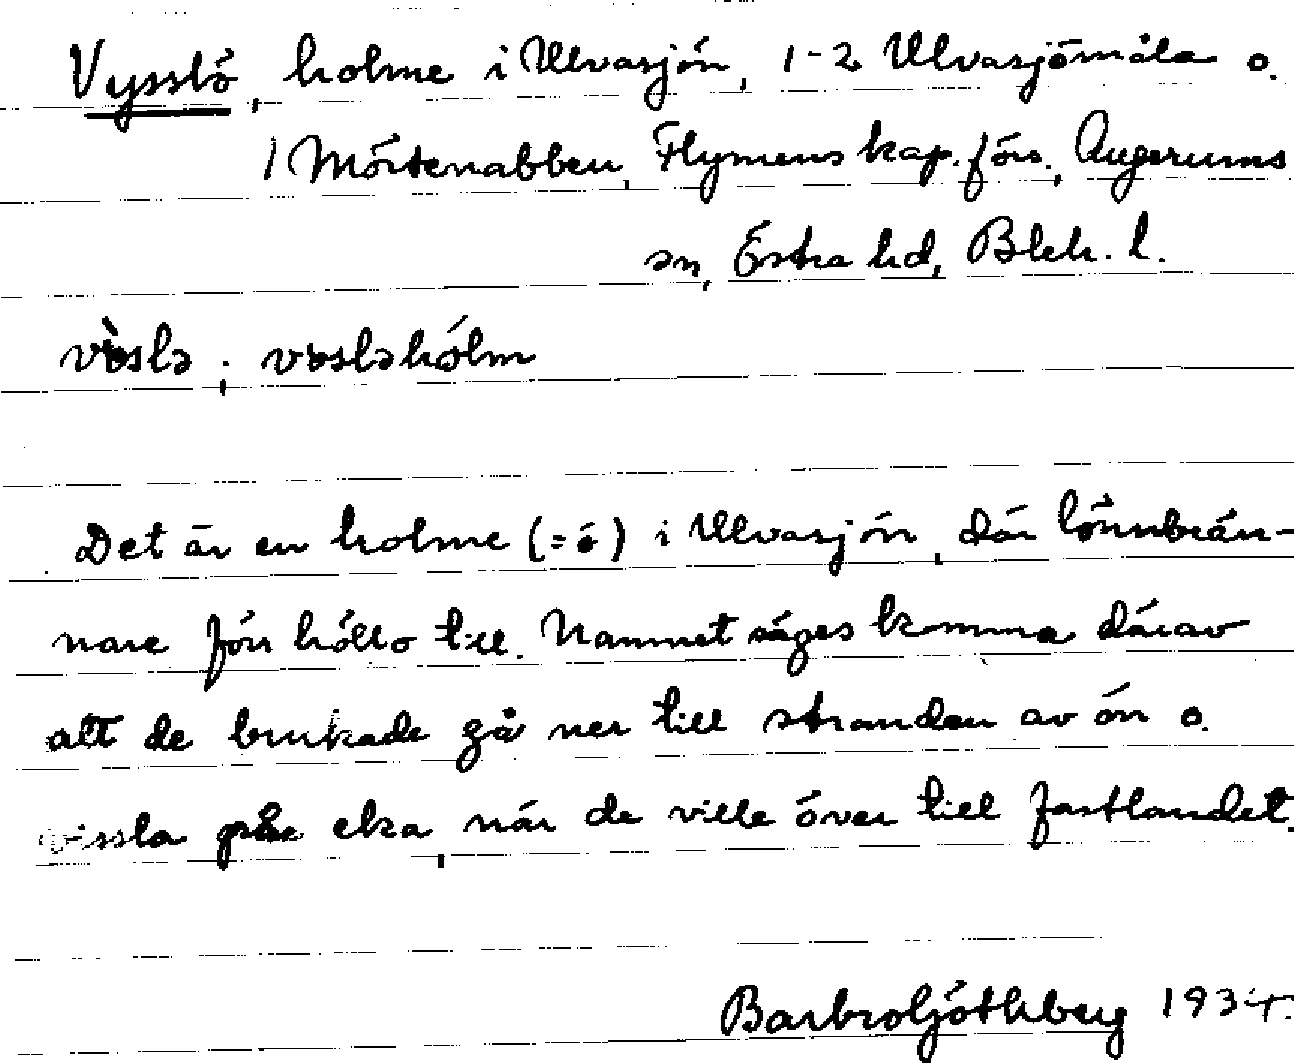 Vysslö, holme i Ulvasjön, 1-2 Ulvasjömåla o.
1 Mörtenabben, Flymens kap. förs., Augerums
sn, Östra hd, Blek. l.
Det är en holme (= ö) i Ulvasjön, där lönnbrän-
nare förr höllo till. Namnet säges komma därav
att de brukade gå ner till stranden av ön o.
vissla på eka, när de ville över till fastlandet.
Barbro Göthberg 1934.